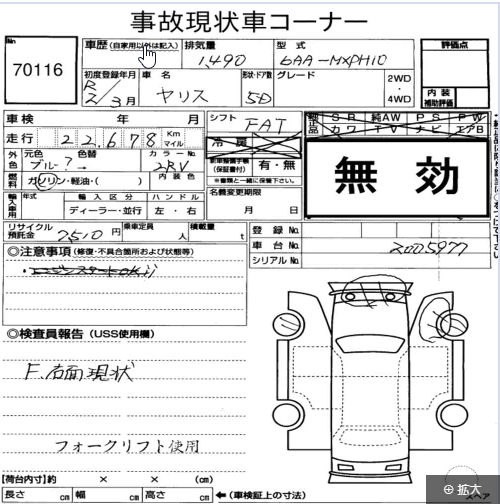 事故現状車コーナー
№
70116
車歴(自家用以外は記入)
排気量
1,490
型式
6AA-MXPH10
評価点
初度登録年月
R2/3月
車名
ヤリス
形状・ドア数
5D
グレード
2WD
・
4WD
内装
補助評価
車検 年 月
シフト
FAT
純正品
SR 純AW PS PW
カワ TV ナビ エアB
走行 22,678 Km
マイル
冷 房
無効
外色
元色
ブルー?→
色替
カラーNo.
2RV
(保証書付)
有・無
※書類と一緒に保管下さい。
燃料
ガソリン・軽油・( )
内装色
名義変更期限
月 日
輸入車用
年式
輸入区分
ディーラー・並行
ハンドル
左・右
リサイクル預託金
7510円
乗車定員
人
積載量
t
登録No.
車台No.
2005977
シリアルNo.
◎注意事項(修復・不具合箇所および状態等)
エンジンスタートOK
◎検査員報告(USS使用欄)
F.右面現状
フォークリフト使用
【荷台内寸】約 × × (cm)
長さ cm 幅 cm 高さ cm ←(車検証上の寸法)
スペア
⊕ 拡大